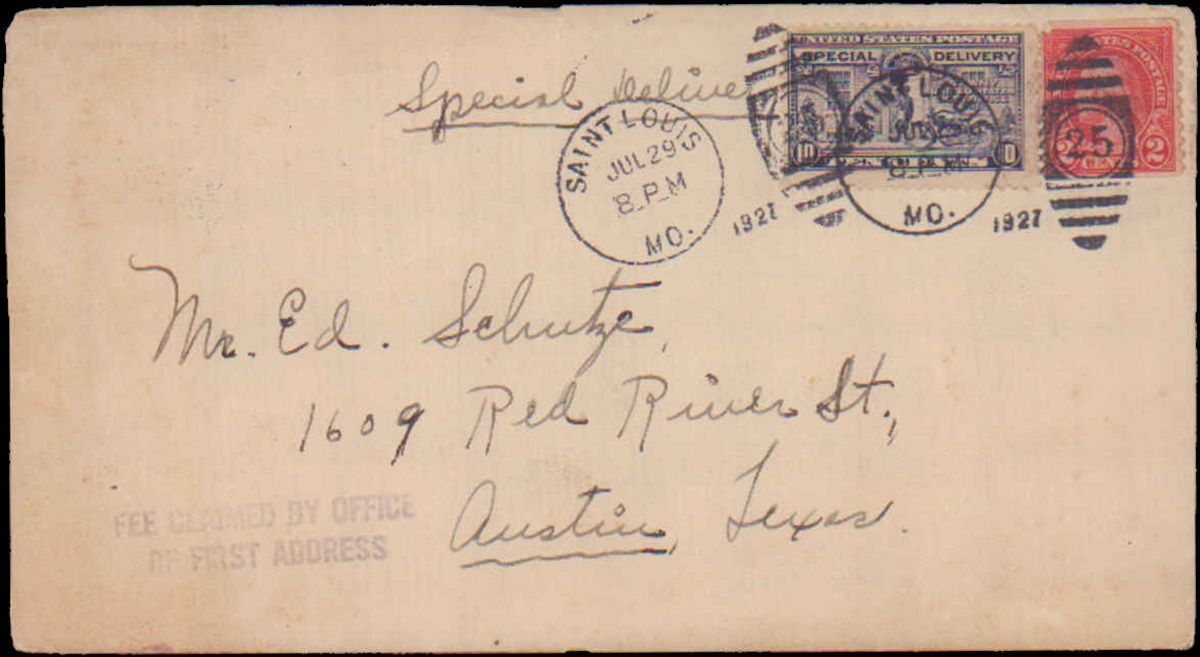 Special Deliver
UNITED STATES POSTAGE
SPECIAL DELIVERY
10 10
STATES POSTAGE
2 CENTS 2
SAINT LOUIS
JUL 29
8 P M
MO.
1927
SAINT LOUIS
JUL 29
8 P M
MO.
1927
25
Mr. Ed. Schutze,
1609 Red River St.,
Austin, Texas.
FEE CLAIMED BY OFFICE
OF FIRST ADDRESS